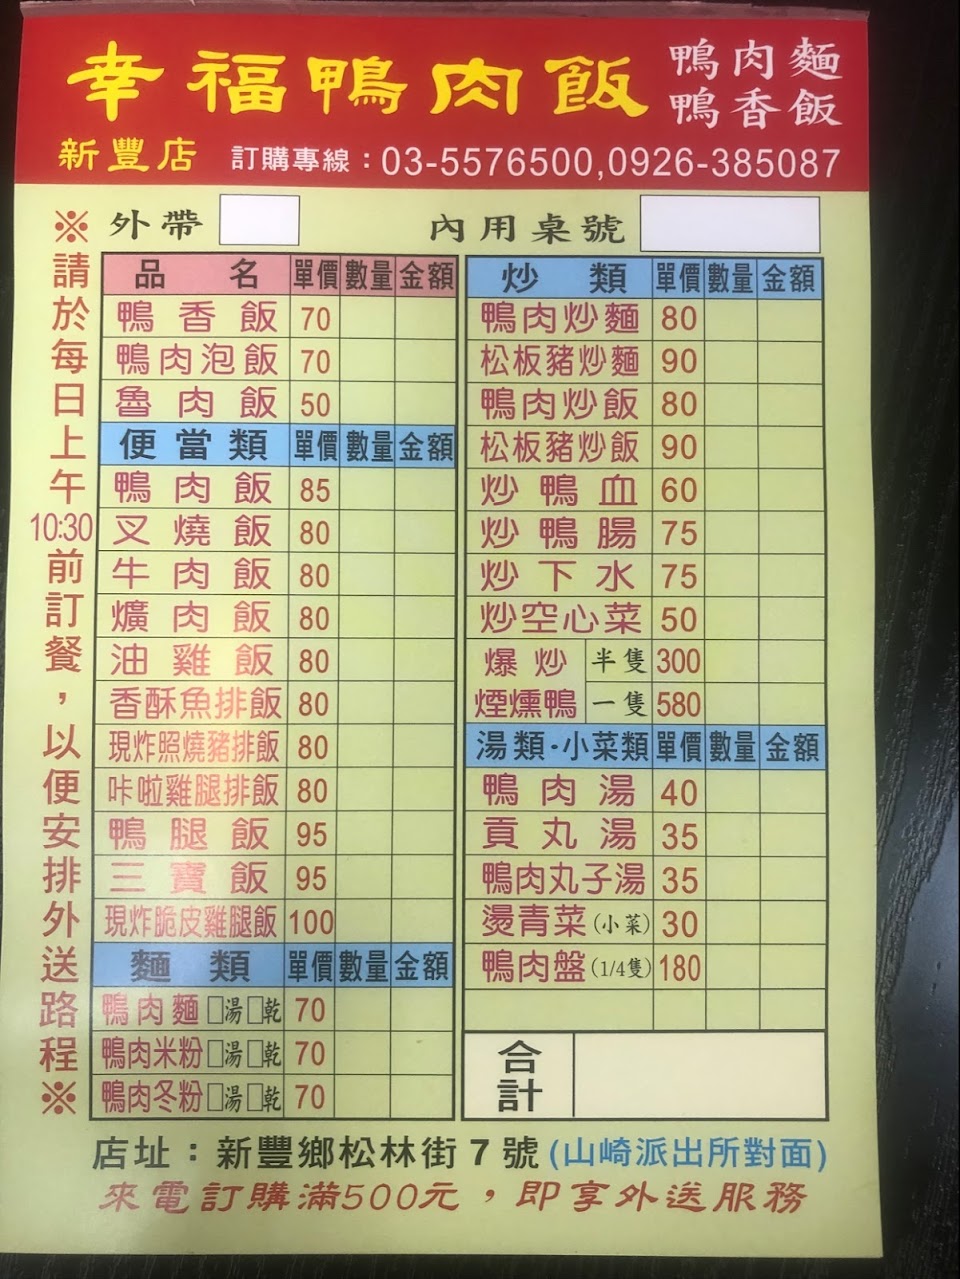 幸福鴨肉飯 鴨肉麵
鴨香飯
新豐店 訂購專線：03-5576500,0926-385087
外帶 內用桌號
※請於每日上午10:30前訂餐，以便安排外送路程※
品名 單價 數量 金額
鴨香飯 70
鴨肉泡飯 70
魯肉飯 50
便當類 單價 數量 金額
鴨肉飯 85
叉燒飯 80
牛肉飯 80
爌肉飯 80
油雞飯 80
香酥魚排飯 80
現炸照燒豬排飯 80
咔啦雞腿排飯 80
鴨腿飯 95
三寶飯 95
現炸脆皮雞腿飯 100
麵類 單價 數量 金額
鴨肉麵 □湯□乾 70
鴨肉米粉 □湯□乾 70
鴨肉冬粉 □湯□乾 70
炒類 單價 數量 金額
鴨肉炒麵 80
松板豬炒麵 90
鴨肉炒飯 80
松板豬炒飯 90
炒鴨血 60
炒鴨腸 75
炒下水 75
炒空心菜 50
爆炒 半隻 300
煙燻鴨 一隻 580
湯類·小菜類 單價 數量 金額
鴨肉湯 40
貢丸湯 35
鴨肉丸子湯 35
燙青菜(小菜) 30
鴨肉盤(1/4隻) 180
合計
店址：新豐鄉松林街7號(山崎派出所對面)
來電訂購滿500元，即享外送服務